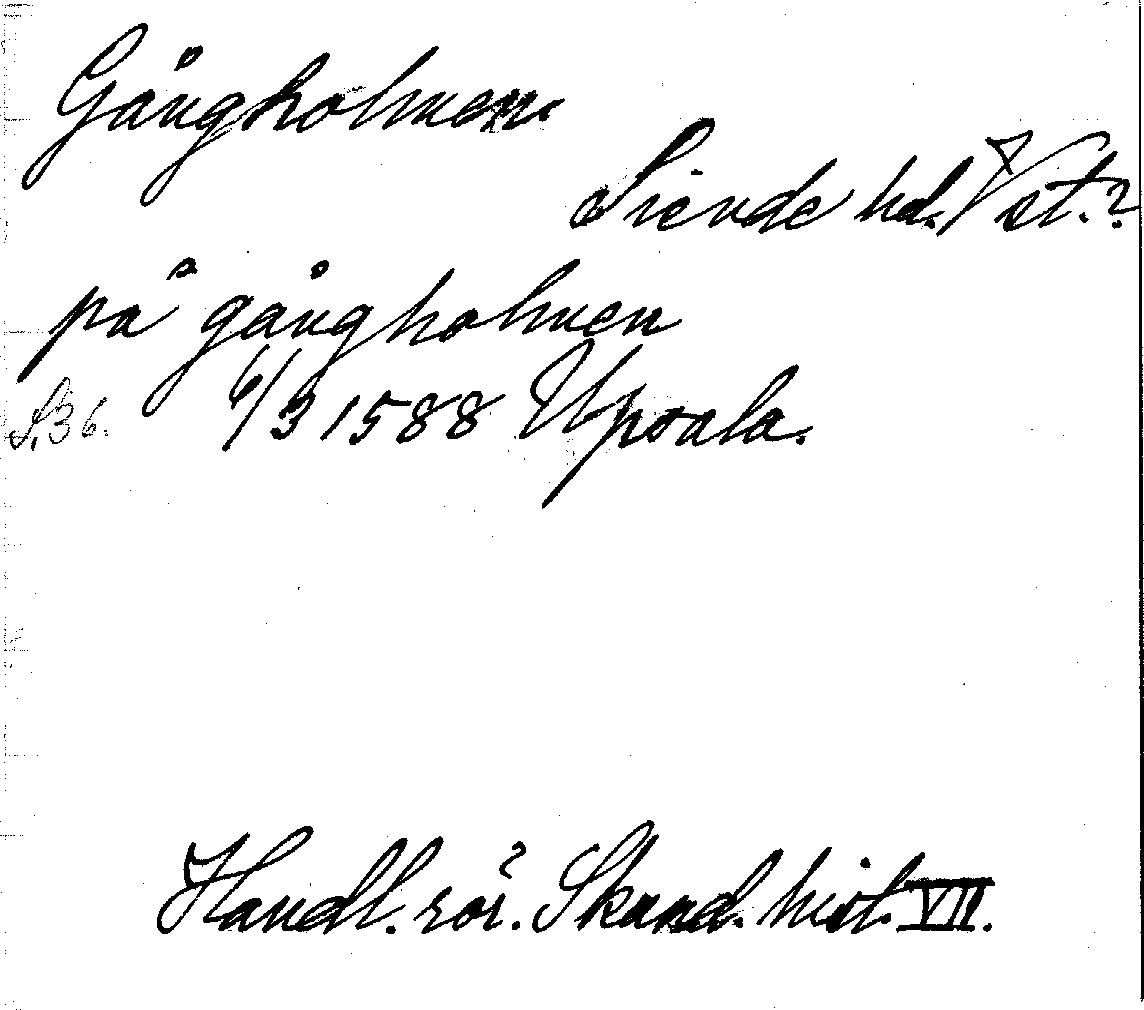 Gångholmen.
Siende hd. Vst.?
på gångholmen
S. 36. 6/3 1588 Upsala.
Handl. rör. Skand. hist. VII.